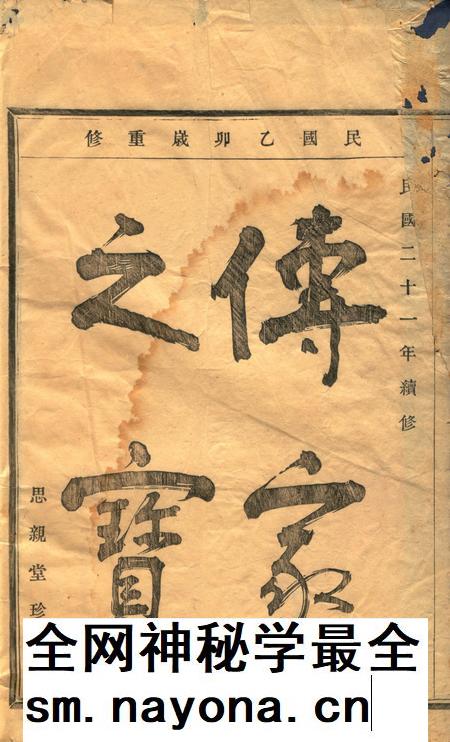 民國乙卯歲重修
民國二十一年續修
傳家
之寶
思親堂珍
全网神秘学最全
sm.nayona.cn